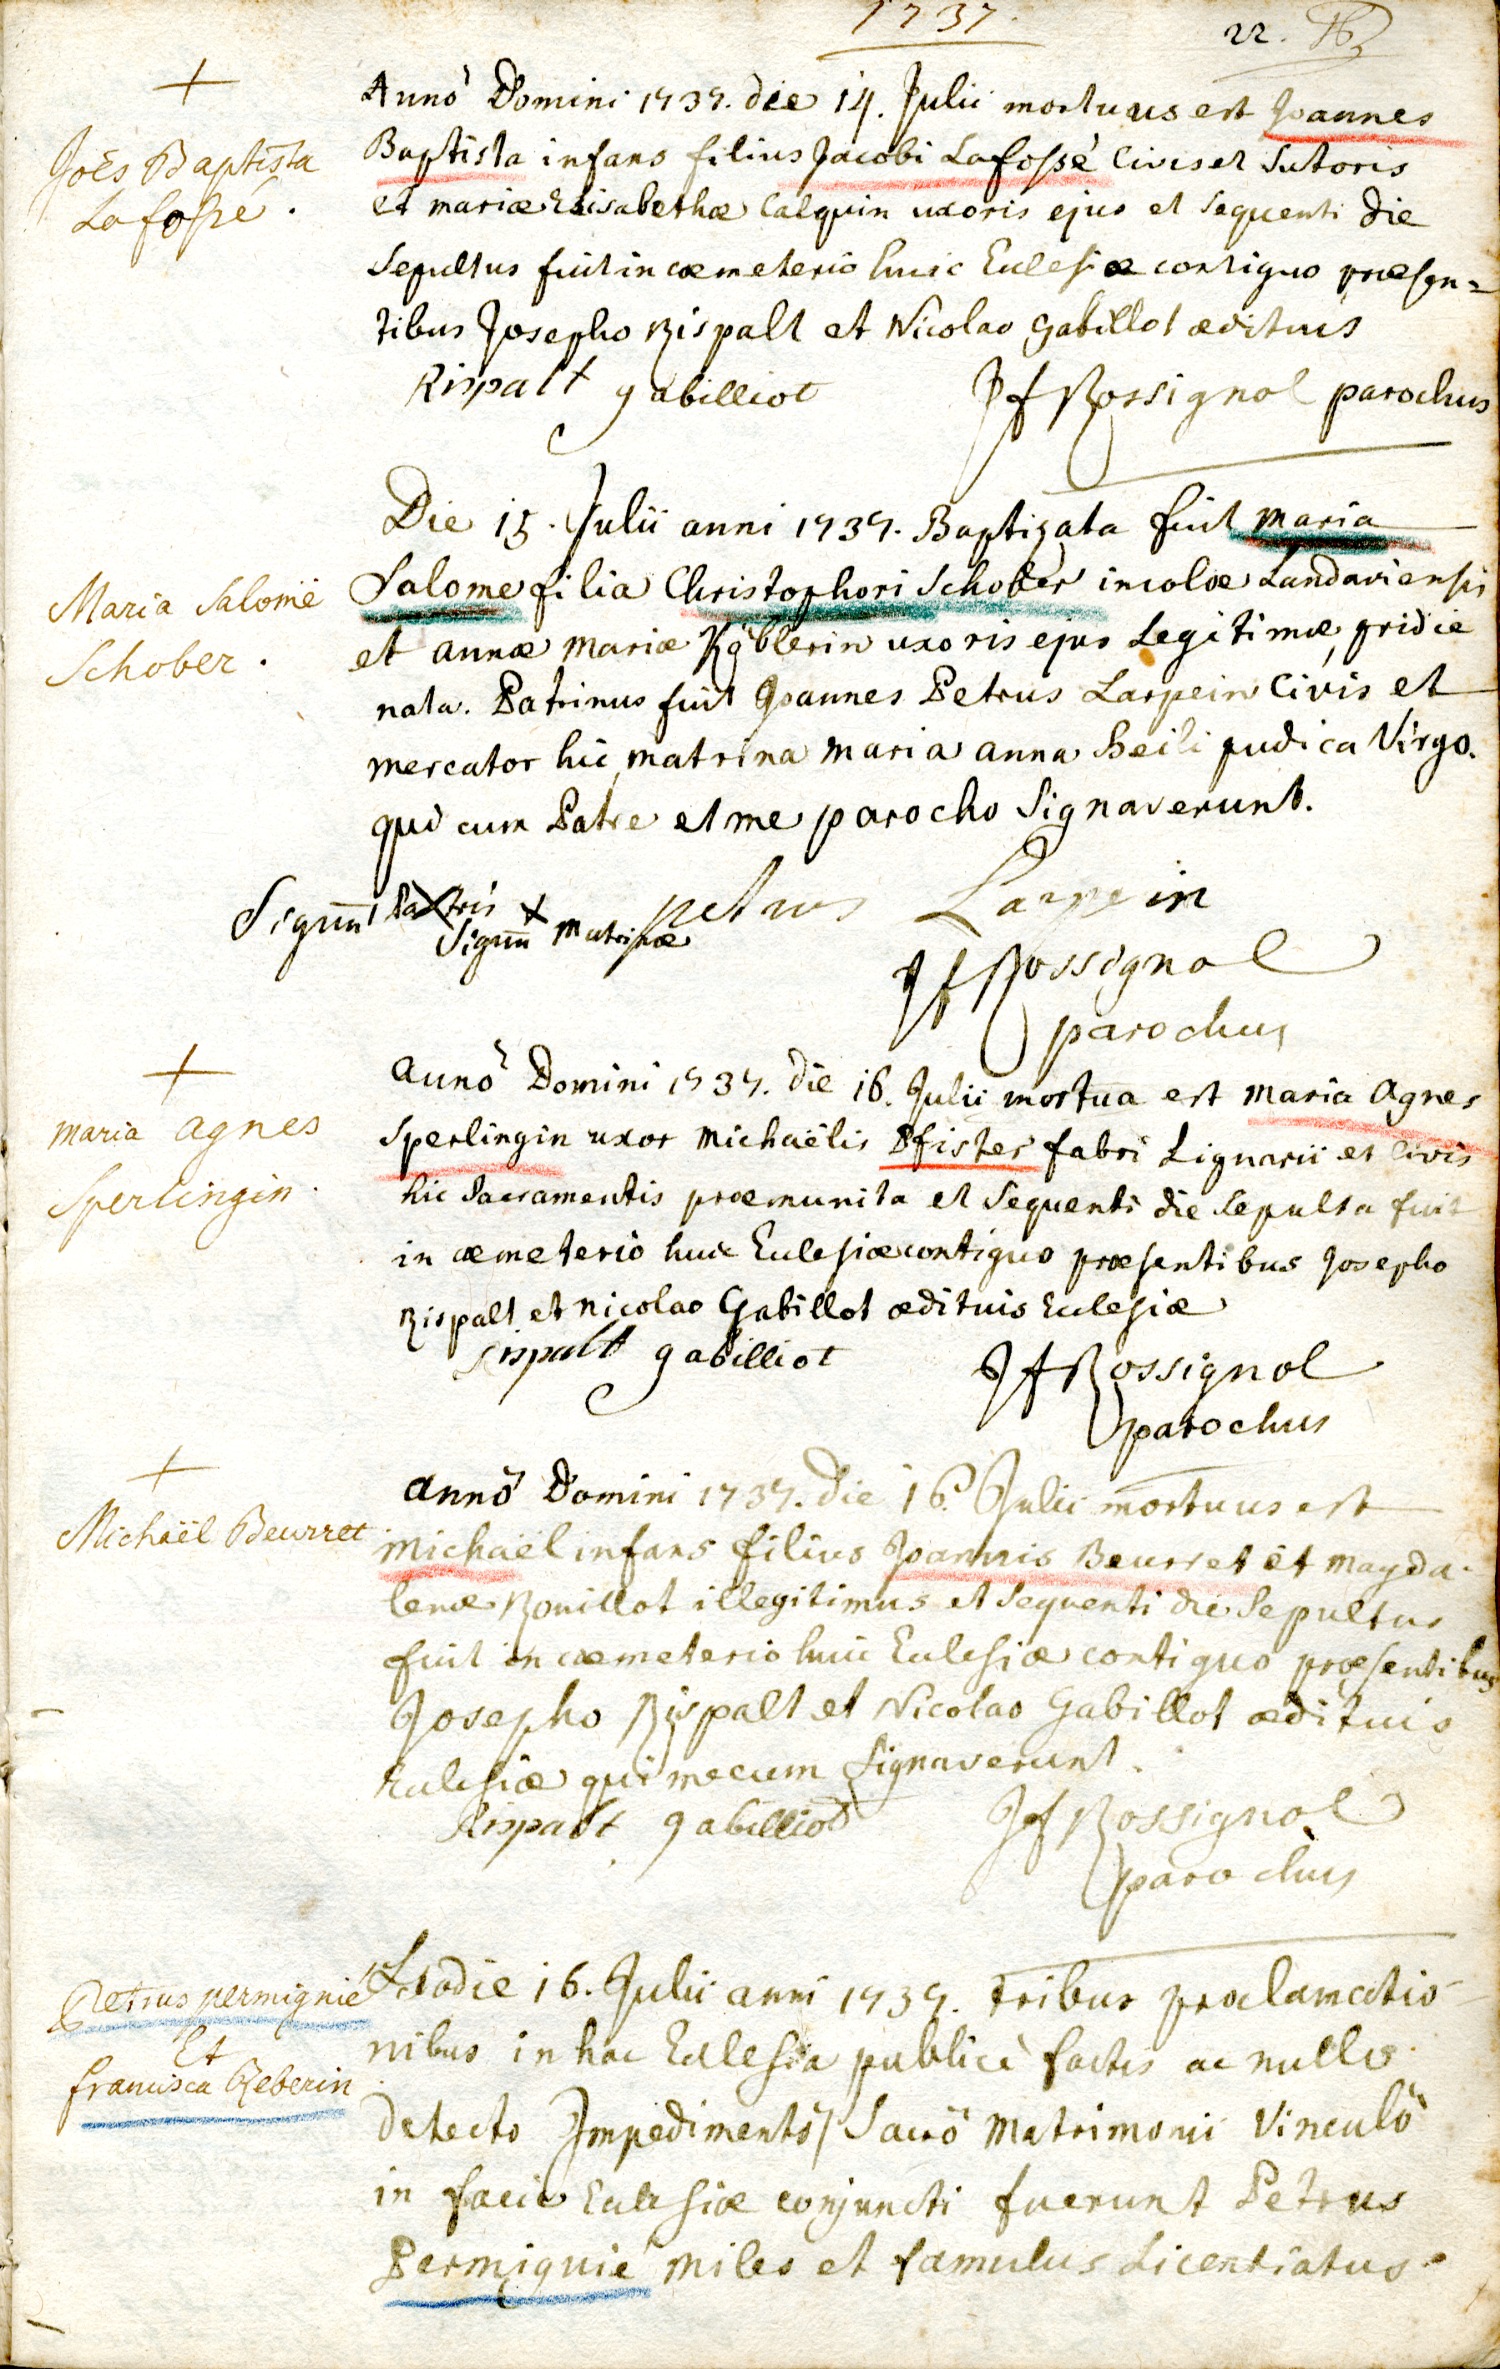 1737.
22.
Annò Domini 1737. die 14. Julii mortuus est Joannes
Joës Baptista
Lafossé.
Baptista infans filius Jacobi Lafossé Civis et Sutoris
et mariæ Elisabethæ Calquin uxoris ejus et sequenti die
Sepultus fuit in cœmeterio huic Eclesiæ contiguo præsen=
tibus Josepho Rispalt et Nicolao Gabillot ædituis
Rispalt gabilliot JfRossignol parochus
Die 15. Julii anni 1737. Baptizata fuit maria
Maria Salomë
Schober.
Salome filia Christophori Schober incolæ Landaviensis
et annæ mariæ Köblerin uxoris ejus Legitimæ, pridie
nata. Patrinus fuit Joannes Petrus Larpein Civis et
mercator hic, matrina maria anna Beili pudica Virgo.
qui cum Patre et me parocho Signaverunt.
Signū Patris petrus Larpein
Signū matrinæ
JfRossignol
parochus
annò Domini 1737. die 16. Julii mortua est maria Agnes
maria agnes
Sperlingin.
Sperlingin uxor michaëlis Pfister fabri Lignarii et Civis
hic Sacramentis præmunita et sequenti die sepulta fuit
in cœmeterio huic Eclesiæ contiguo præsentibus Josepho
Rispalt et nicolao Gabillot ædituis Eclesiæ
Rispalt gabilliot JfRossignol
parochus
annò Domini 1737. die 16. Julii mortuus est
Michaël Beurret
michaël infans filius Joannis Beurret et magda-
lenæ Rouillot illegitimus et sequenti die Sepultus
fuit in cœmeterio huic Eclesiæ contiguo præsentibus
Josepho Rispalt et Nicolao Gabillot ædituis
Eclesiæ qui mecum Signaverunt.
Rispalt gabilliot JfRossignol
parochus
Petrus permignié
Et
francisca Reberin
Hodie 16. Julii anni 1737. tribus proclamatio-
nibus in hac Eclesia publicè factis ac nullo
detecto Impedimentò, Sacrò Matrimonii Vinculò
in facie Eclesiæ conjuncti fuerunt Petrus
Permignié miles et famulus Licentiatus